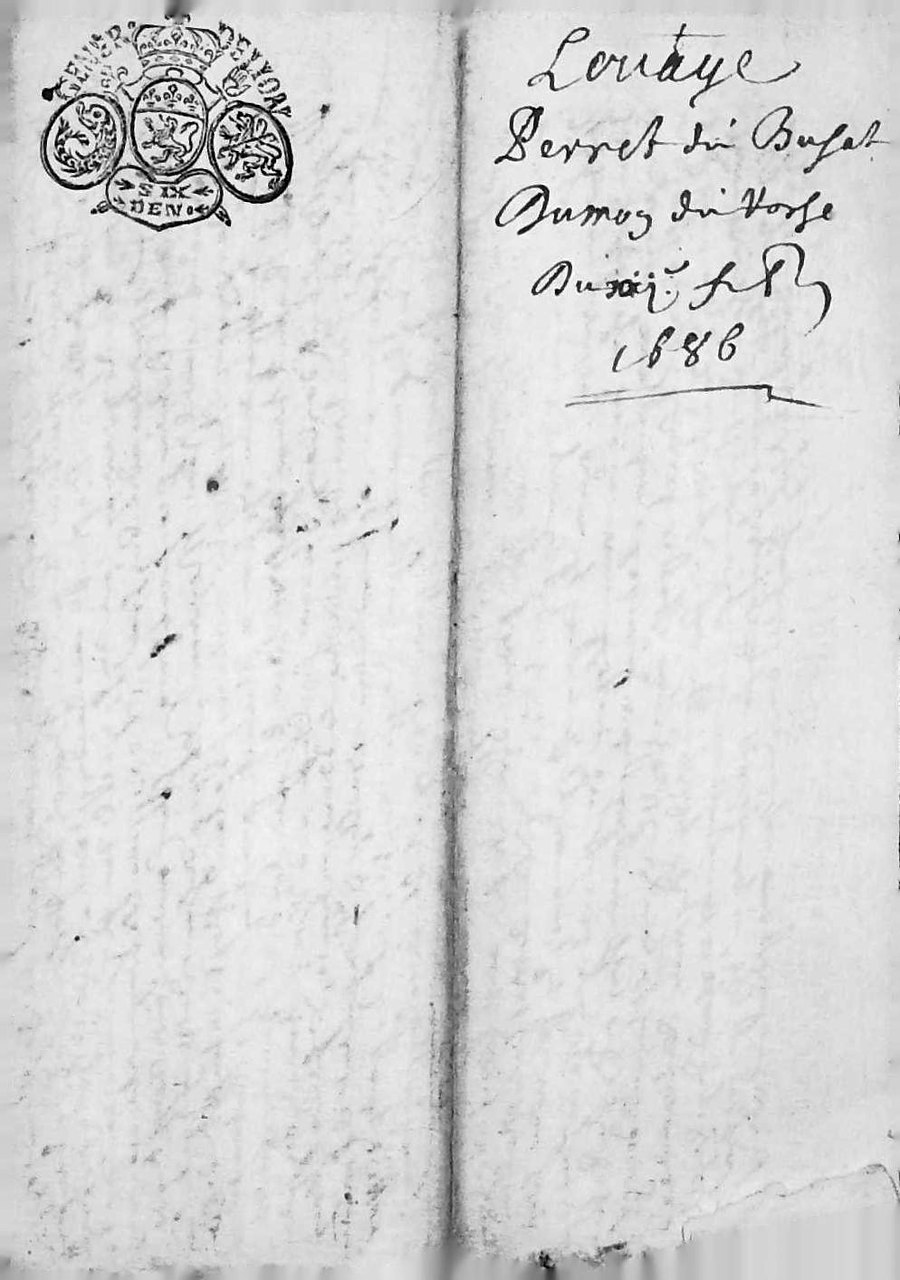 GENER DE LYON
SIX
DEN.
Louaye
Perret du Buchat
Dumoy du Vorse
Du xij.e
1686